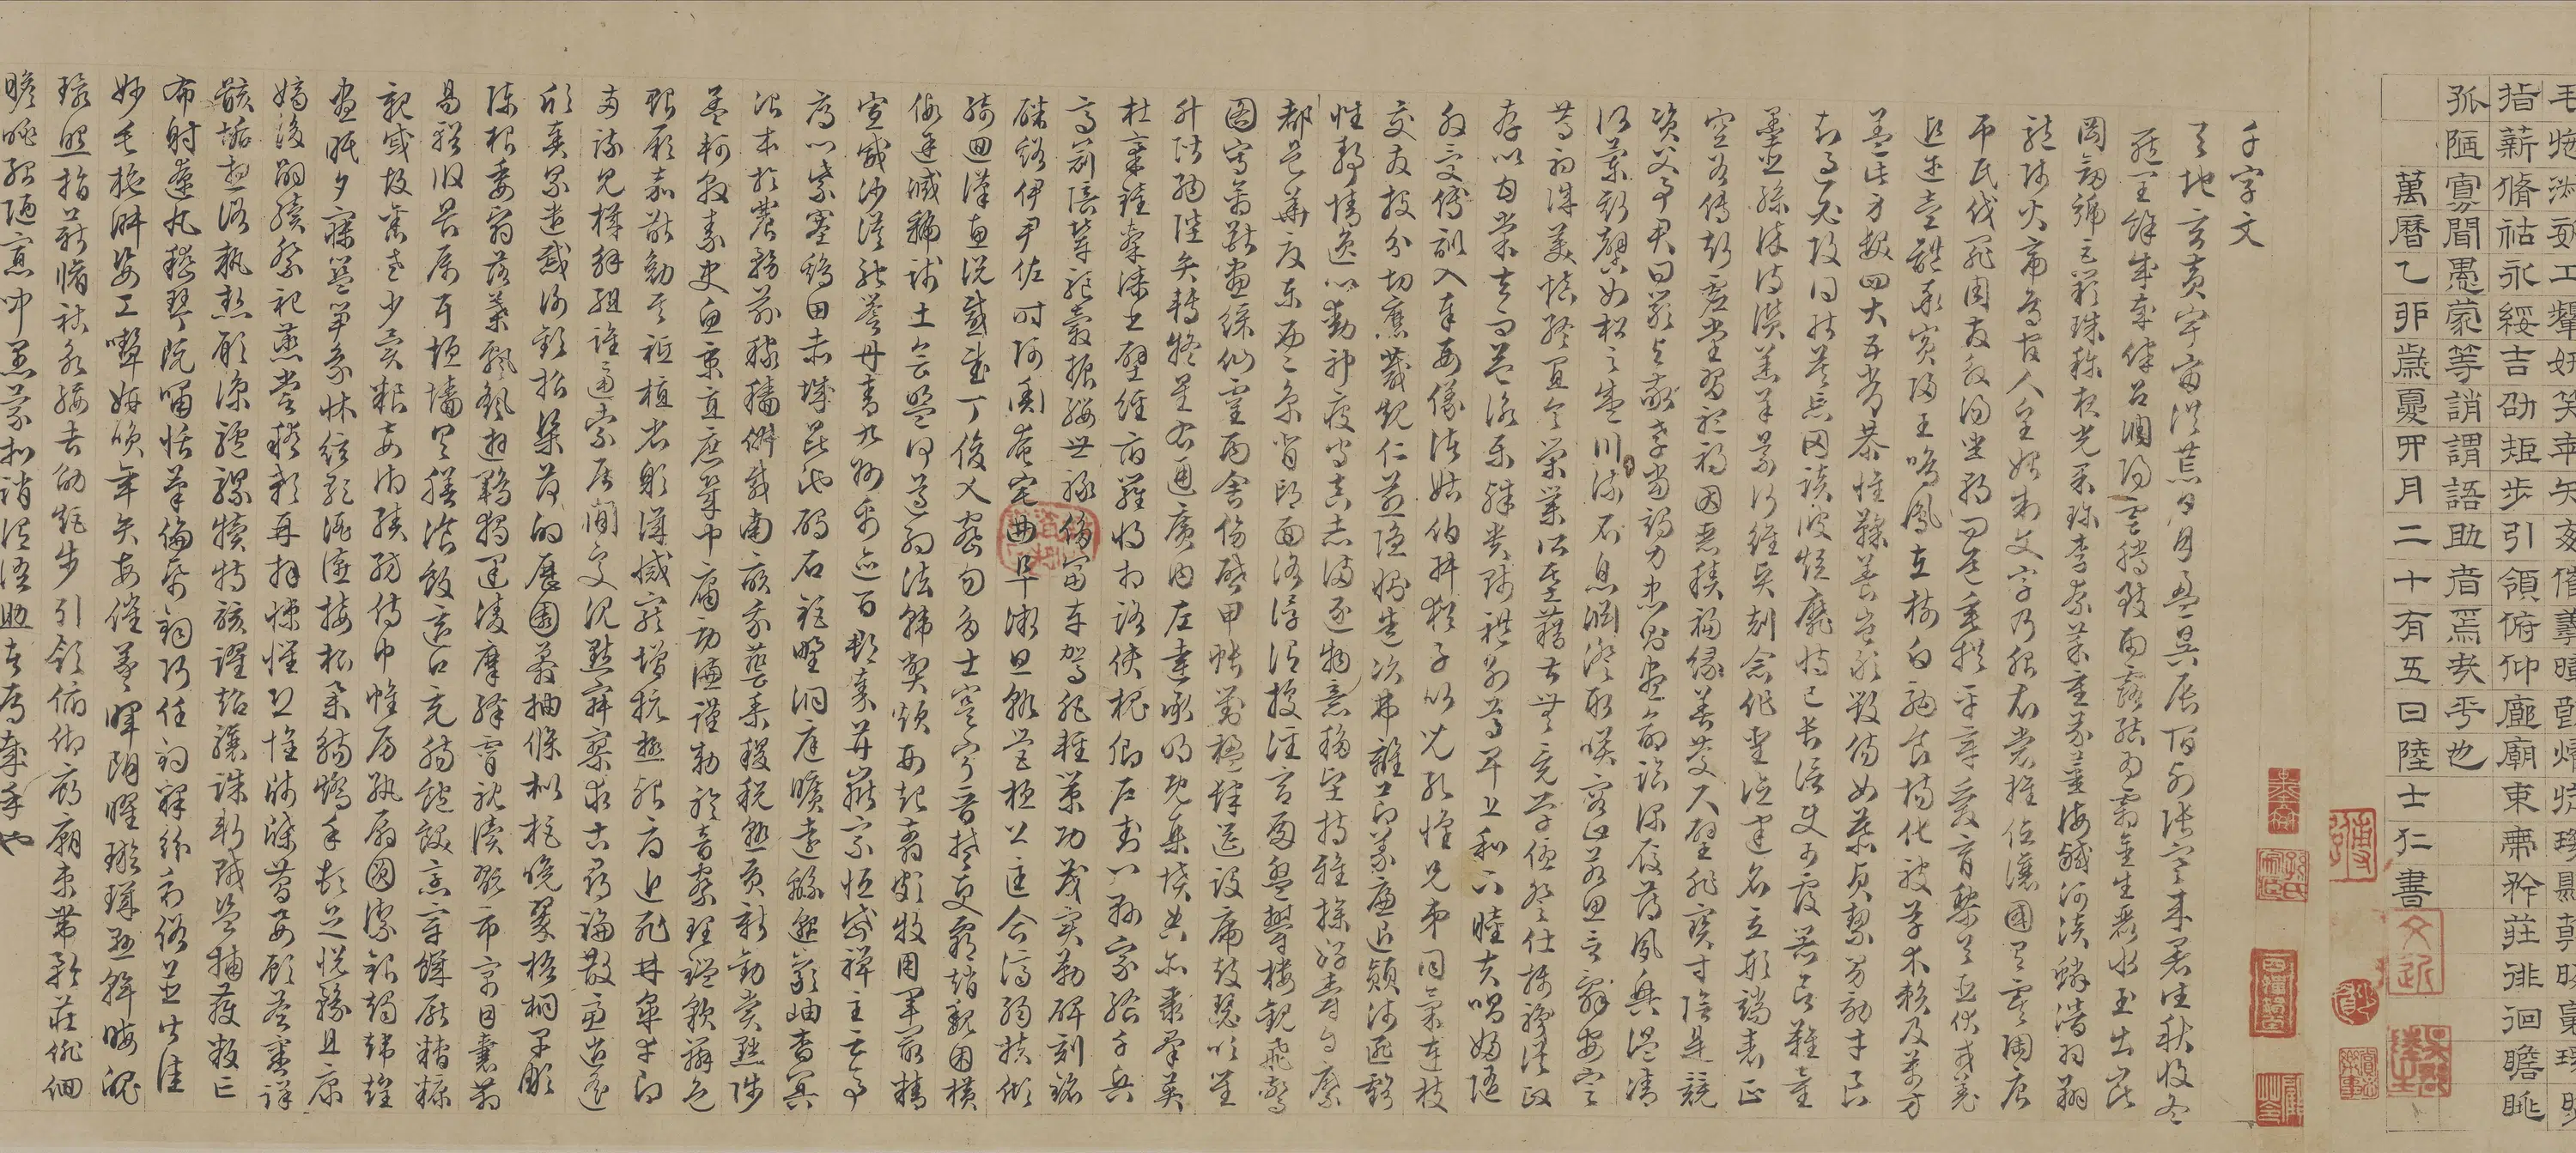 毛施淑姿工顰妍笑年矢每催
指薪脩祜永綏吉劭矩步引領俯仰廊廟束帶矜莊徘徊瞻眺
孤陋寡聞愚蒙等誚謂語助者焉哉乎也
萬曆乙卯歲夏四月二十有五日陸士仁書
千字文
天地玄黃宇宙洪荒日月盈昃辰宿列張寒來暑往秋收冬
藏閏餘成歲律呂調陽雲騰致雨露結為霜金生麗水玉出崑
岡劍號巨闕珠稱夜光果珍李柰菜重芥薑海鹹河淡鱗潛羽翔
龍師火帝鳥官人皇始制文字乃服衣裳推位讓國有虞陶唐
弔民伐罪周發殷湯坐朝問道垂拱平章愛育黎首臣伏戎羌
遐邇壹體率賓歸王鳴鳳在樹白駒食場化被草木賴及萬方
蓋此身髮四大五常恭惟鞠養豈敢毀傷女慕貞潔男效才良
知過必改得能莫忘罔談彼短靡恃己長信使可覆器欲難量
墨悲絲染詩讚羔羊景行維賢克念作聖德建名立形端表正
空谷傳聲虛堂習聽禍因惡積福緣善慶尺璧非寶寸陰是競
資父事君曰嚴與敬孝當竭力忠則盡命臨深履薄夙興溫凊
似蘭斯馨如松之盛川流不息淵澄取映容止若思言辭安定
篤初誠美慎終宜令榮業所基藉甚無竟學優登仕攝職從政
存以甘棠去而益詠樂殊貴賤禮別尊卑上和下睦夫唱婦隨
外受傅訓入奉母儀諸姑伯叔猶子比兒孔懷兄弟同氣連枝
交友投分切磨箴規仁慈隱惻造次弗離節義廉退顛沛匪虧
性靜情逸心動神疲守真志滿逐物意移堅持雅操好爵自縻
都邑華夏東西二京背邙面洛浮渭據涇宮殿盤鬱樓觀飛驚
圖寫禽獸畫綵仙靈丙舍傍啟甲帳對楹肆筵設席鼓瑟吹笙
升階納陛弁轉疑星右通廣內左達承明既集墳典亦聚群英
杜稾鍾隸漆書壁經府羅將相路俠槐卿戶封八縣家給千兵
高冠陪輦驅轂振纓世祿侈富車駕肥輕策功茂實勒碑刻銘
磻溪伊尹佐時阿衡奄宅曲阜微旦孰營桓公匡合濟弱扶傾
綺迴漢惠說感武丁俊乂密勿多士寔寧晉楚更霸趙魏困橫
假途滅虢踐土會盟何遵約法韓弊煩刑起翦頗牧用軍最精
宣威沙漠馳譽丹青九州禹跡百郡秦并嶽宗恒岱禪主云亭
雁門紫塞雞田赤城昆池碣石鉅野洞庭曠遠綿邈巖岫杳冥
治本於農務茲稼穡俶載南畝我藝黍稷稅熟貢新勸賞黜陟
孟軻敦素史魚秉直庶幾中庸勞謙謹敕聆音察理鑑貌辨色
貽厥嘉猷勉其祗植省躬譏誡寵增抗極殆辱近恥林皋幸即
兩疏見機解組誰逼索居閒處沉默寂寥求古尋論散慮逍遙
欣奏累遣慼謝歡招渠荷的歷園莽抽條枇杷晚翠梧桐早凋
陳根委翳落葉飄颻遊鵾獨運凌摩絳霄耽讀翫市寓目囊箱
易輶攸畏屬耳垣牆具膳飡飯適口充腸飽飫烹宰飢厭糟糠
親戚故舊老少異糧妾御績紡侍巾帷房紈扇圓潔銀燭煒煌
晝眠夕寐籃筍象床絃歌酒讌接杯舉觴矯手頓足悅豫且康
嫡後嗣續祭祀蒸嘗稽顙再拜悚懼恐惶牋牒簡要顧答審詳
骸垢想浴執熱願涼驢騾犢特駭躍超驤誅斬賊盜捕獲叛亡
布射遼丸嵇琴阮嘯恬筆倫紙鈞巧任釣釋紛利俗並皆佳
妙毛施淑姿工顰妍笑年矢每催羲暉朗曜璇璣懸斡晦魄
環照指薪脩祜永綏吉劭矩步引領俯仰廊廟束帶矜莊徘徊
瞻眺孤陋寡聞愚蒙等誚謂語助者焉哉乎也